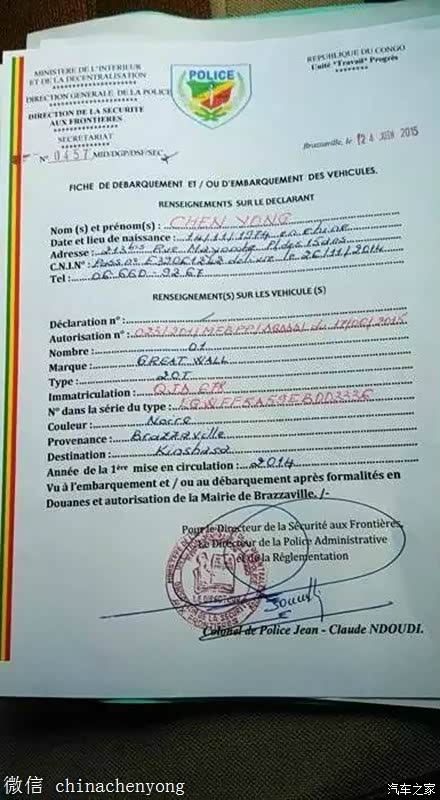 MINISTERE DE L'INTERIEUR
ET DE LA DECENTRALISATION
DIRECTION GENERALE DE LA POLICE
DIRECTION DE LA SECURITE
AUX FRONTIERES
SECRETARIAT
N° 0457 MID/DGP/DSF/SEC
POLICE
REPUBLIQUE DU CONGO
Unité *Travail* Progrès
Brazzaville, le 24 JUIN 2015
FICHE DE DEBARQUEMENT ET / OU D'EMBARQUEMENT DES VEHICULES.
RENSEIGNEMENTS SUR LE DECLARANT
Nom (s) et prénom(s) : CHEN YONG
Date et lieu de naissance : 14/11/1974 en chine
Adresse : 213bis Rue Mayombe
C.N.I.N° : délivré le 26/11/2014
Tel : 06 660-92 67
RENSEIGNEMENT(S) SUR LES VEHICULE (S)
Déclaration n° :
Autorisation n° : du
Nombre : 01
Marque : GREAT WALL
Type :
Immatriculation :
N° dans la série du type :
Couleur : Noire
Provenance : Brazzaville
Destination : Kinshasa
Année de la 1ère mise en circulation : 2014
Vu à l'embarquement et / ou au débarquement après formalités en
Douanes et autorisation de la Mairie de Brazzaville. /-
Pour le Directeur de la Sécurité aux Frontières,
Le Directeur de la Police Administrative
et de la Réglementation
Colonel de Police Jean - Claude NDOUDI.
微信 chinachenyong
汽车之家